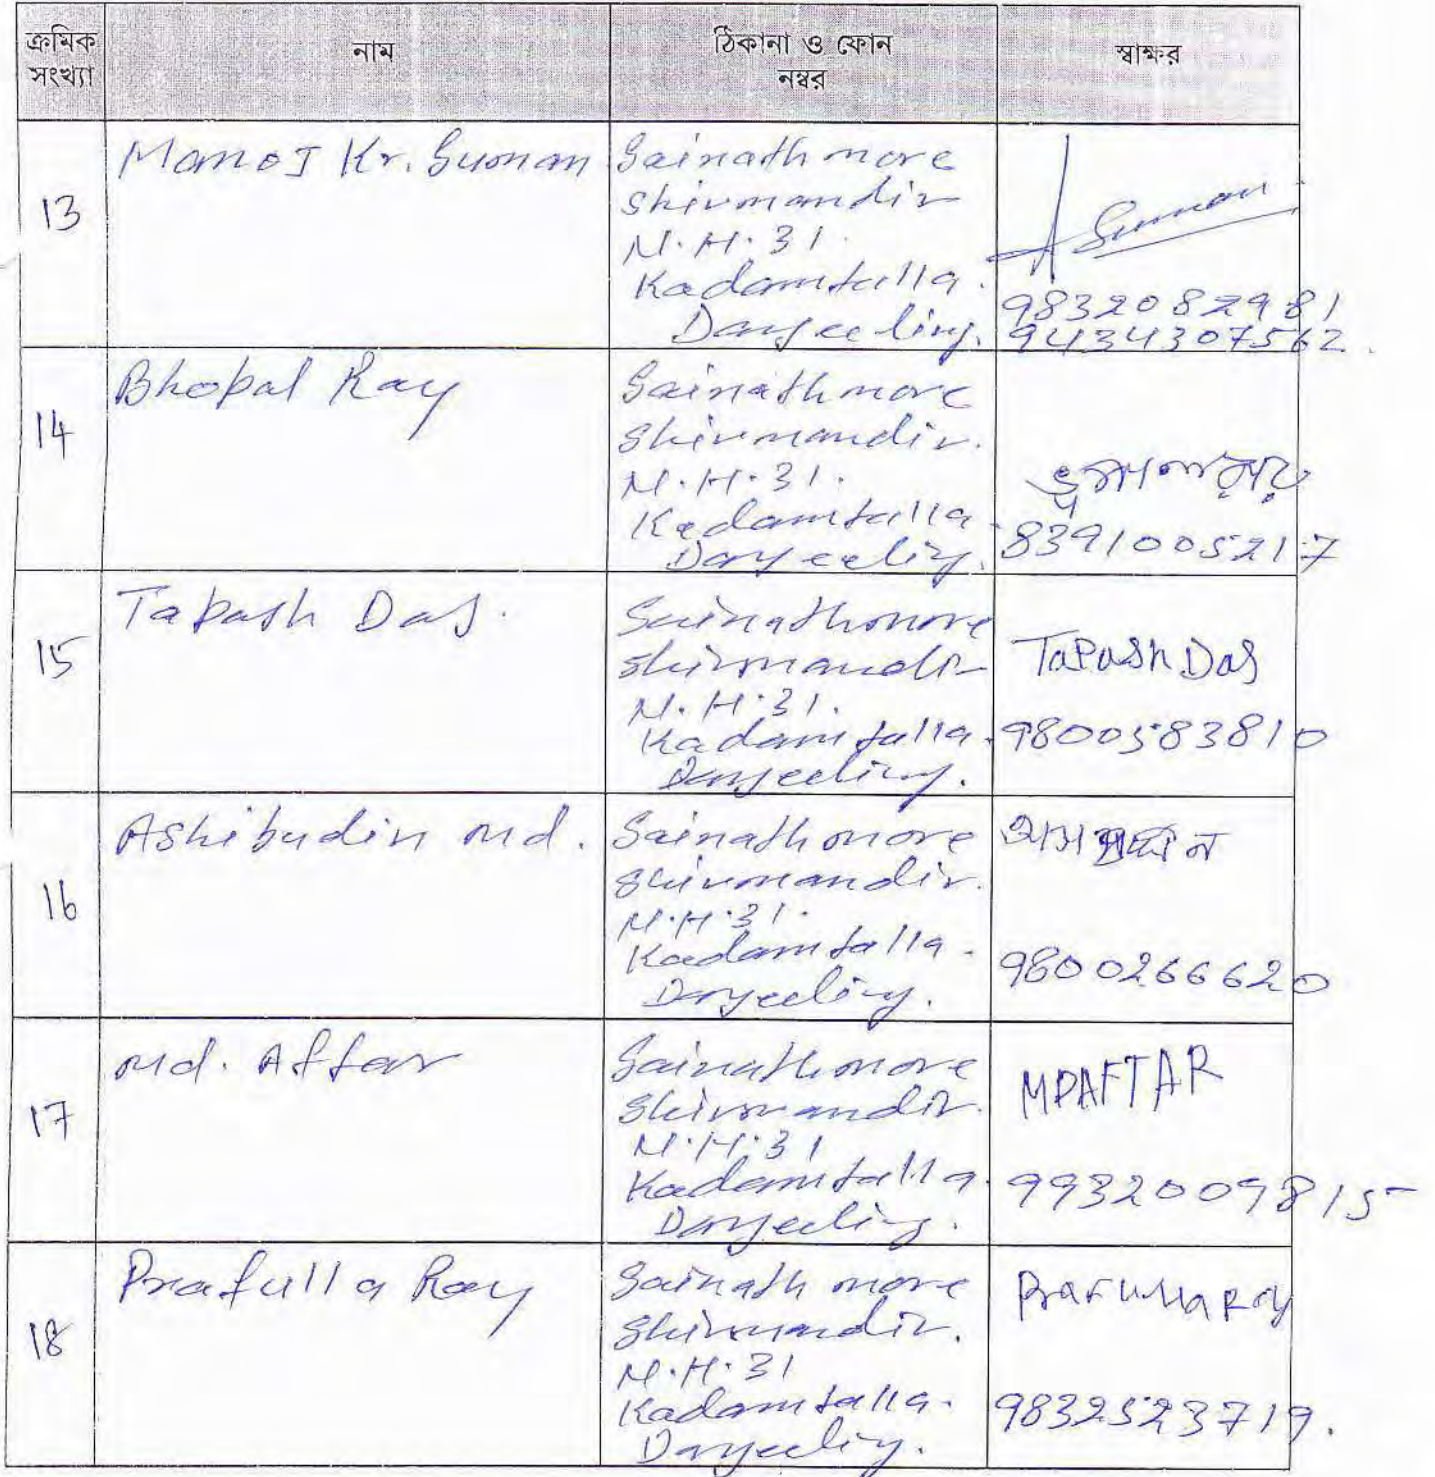 ক্রমিক সংখ্যা নাম ঠিকানা ও ফোন নম্বর স্বাক্ষর
13 Manoj Kr. Suman Sainath more
Shivmandir
N.H.31.
Kadamtulla.
Darjeeling.
Suman
9832082981
9434307562.
14 Bhopal Ray Sainath more
Shivmandir.
N.H.31.
Kadamtulla
Darjeeling.
8391005217
15 Tapash Das. Sainath more
Shivmandir
N.H.31.
Kadamtulla.
Darjeeling.
Tapash Das
9800583810
16 Ashibudin Md. Sainath more
Shivmandir.
N.H.31.
Kadamtalla.
Darjeeling.
9800266620
17 Md. Aftar Sainath more
Shivmandir.
N.H.31
Kadamtalla.
Darjeeling.
MDAFTAR
9932009815
18 Prafulla Ray Sainath more
Shivmandir.
N.H.31
Kadamtalla.
Darjeeling.
Prafulla Roy
9832523719.